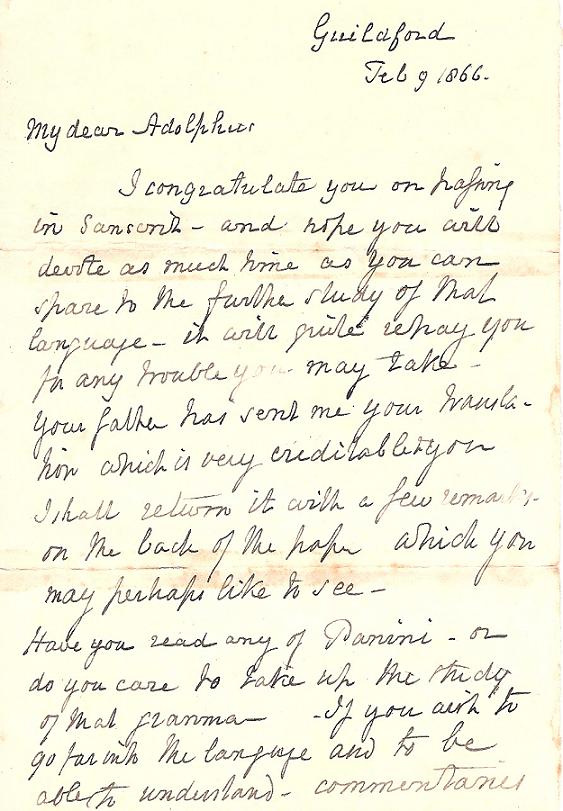 Guildford
Feb 9 1866.
My dear Adolphus
I congratulate you on passing
in Sanscrit - and hope you will
devote as much time as you can
spare to the further study of that
language - it will quite repay you
for any trouble you may take -
Your father has sent me your transla-
tion which is very creditable to you
I shall return it with a few remarks -
on the back of the paper which you
may perhaps like to see -
Have you read any of Panini - or
do you care to take up the study
of that grammar - If you wish to
go far into the language and to be
able to understand - commentaries